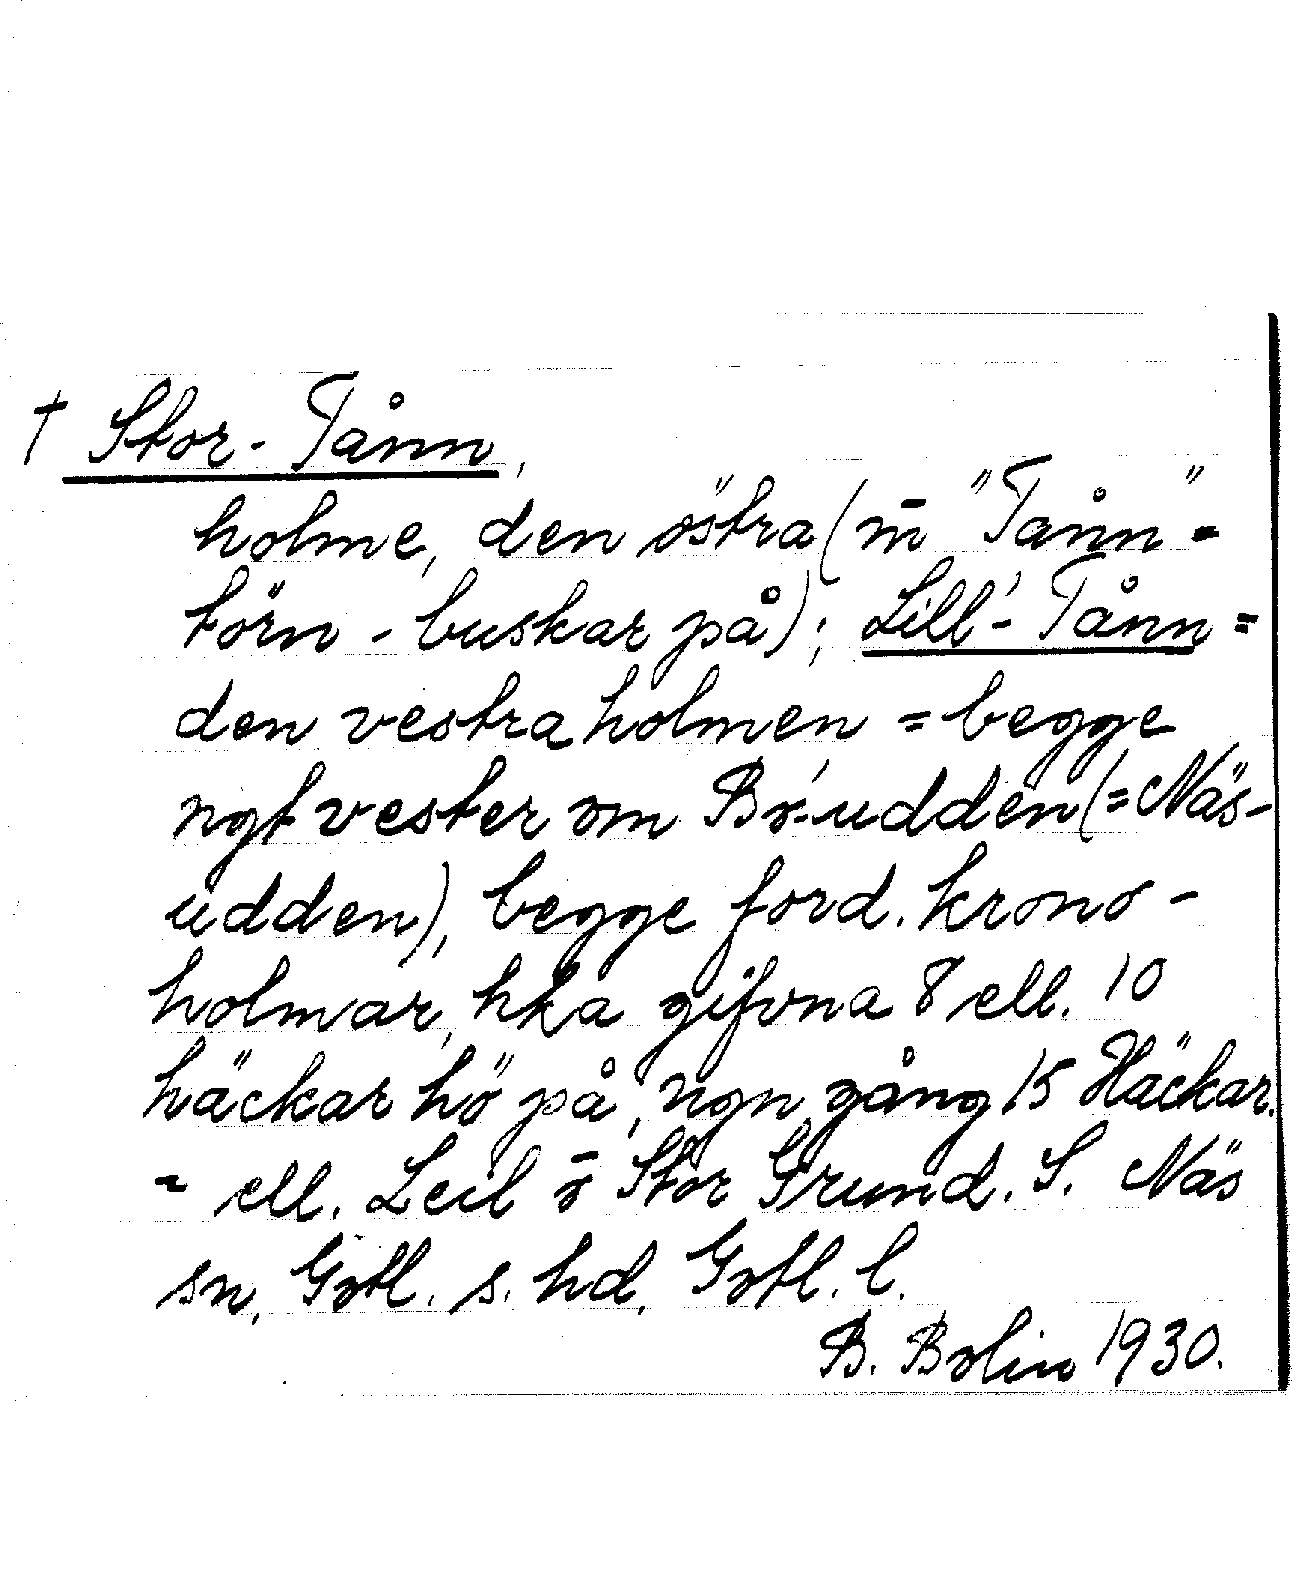 † Stor-Tånn,
holme, den östra (m̄ "Tånn"=
törn-buskar på); Lill'-Tånn=
den vestra holmen = begge
ngt vester om Bo'-udden (=Näs-
udden), begge ford. krono-
holmar, hka gifvna 8 ell. 10
häckar hö på, ngn gång 15 Häckar.
= ell. Leil ō Stor Grund. S. Näs
sn, Gotl. s. hd, Gotl. l.
B. Bolin 1930.